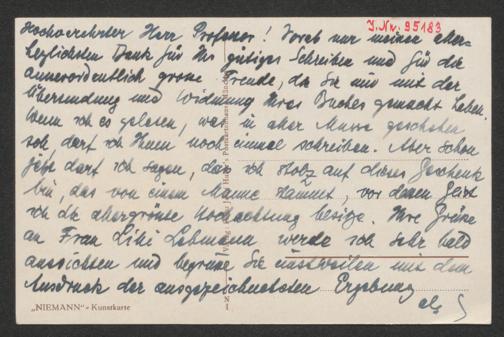 J. Nr. 95183
Hochverehrter Herr Professor! Vorab nur meinen aller-
herzlichsten Dank für Ihr gütiges Schreiben und für die
ausserordentlich grosse Freude, die Sie mir mit der
Übersendung und Widmung Ihres Buches gemacht haben.
Wenn ich es gelesen, was in aller Musse geschehen
soll, darf ich Ihnen noch einmal schreiben. Aber schon
jetzt darf ich sagen, dass ich stolz auf dieses Geschenk
bin, das von einem Manne stammt, vor dessen Geist
ich die allergrösste Hochachtung besitze. Ihre Grüsse
an Frau Lilli Lehmann werde ich sehr bald
ausrichten und begrüsse Sie einstweilen mit dem
Ausdruck der ausgezeichnetsten Ergebung
„NIEMANN“-Kunstkarte